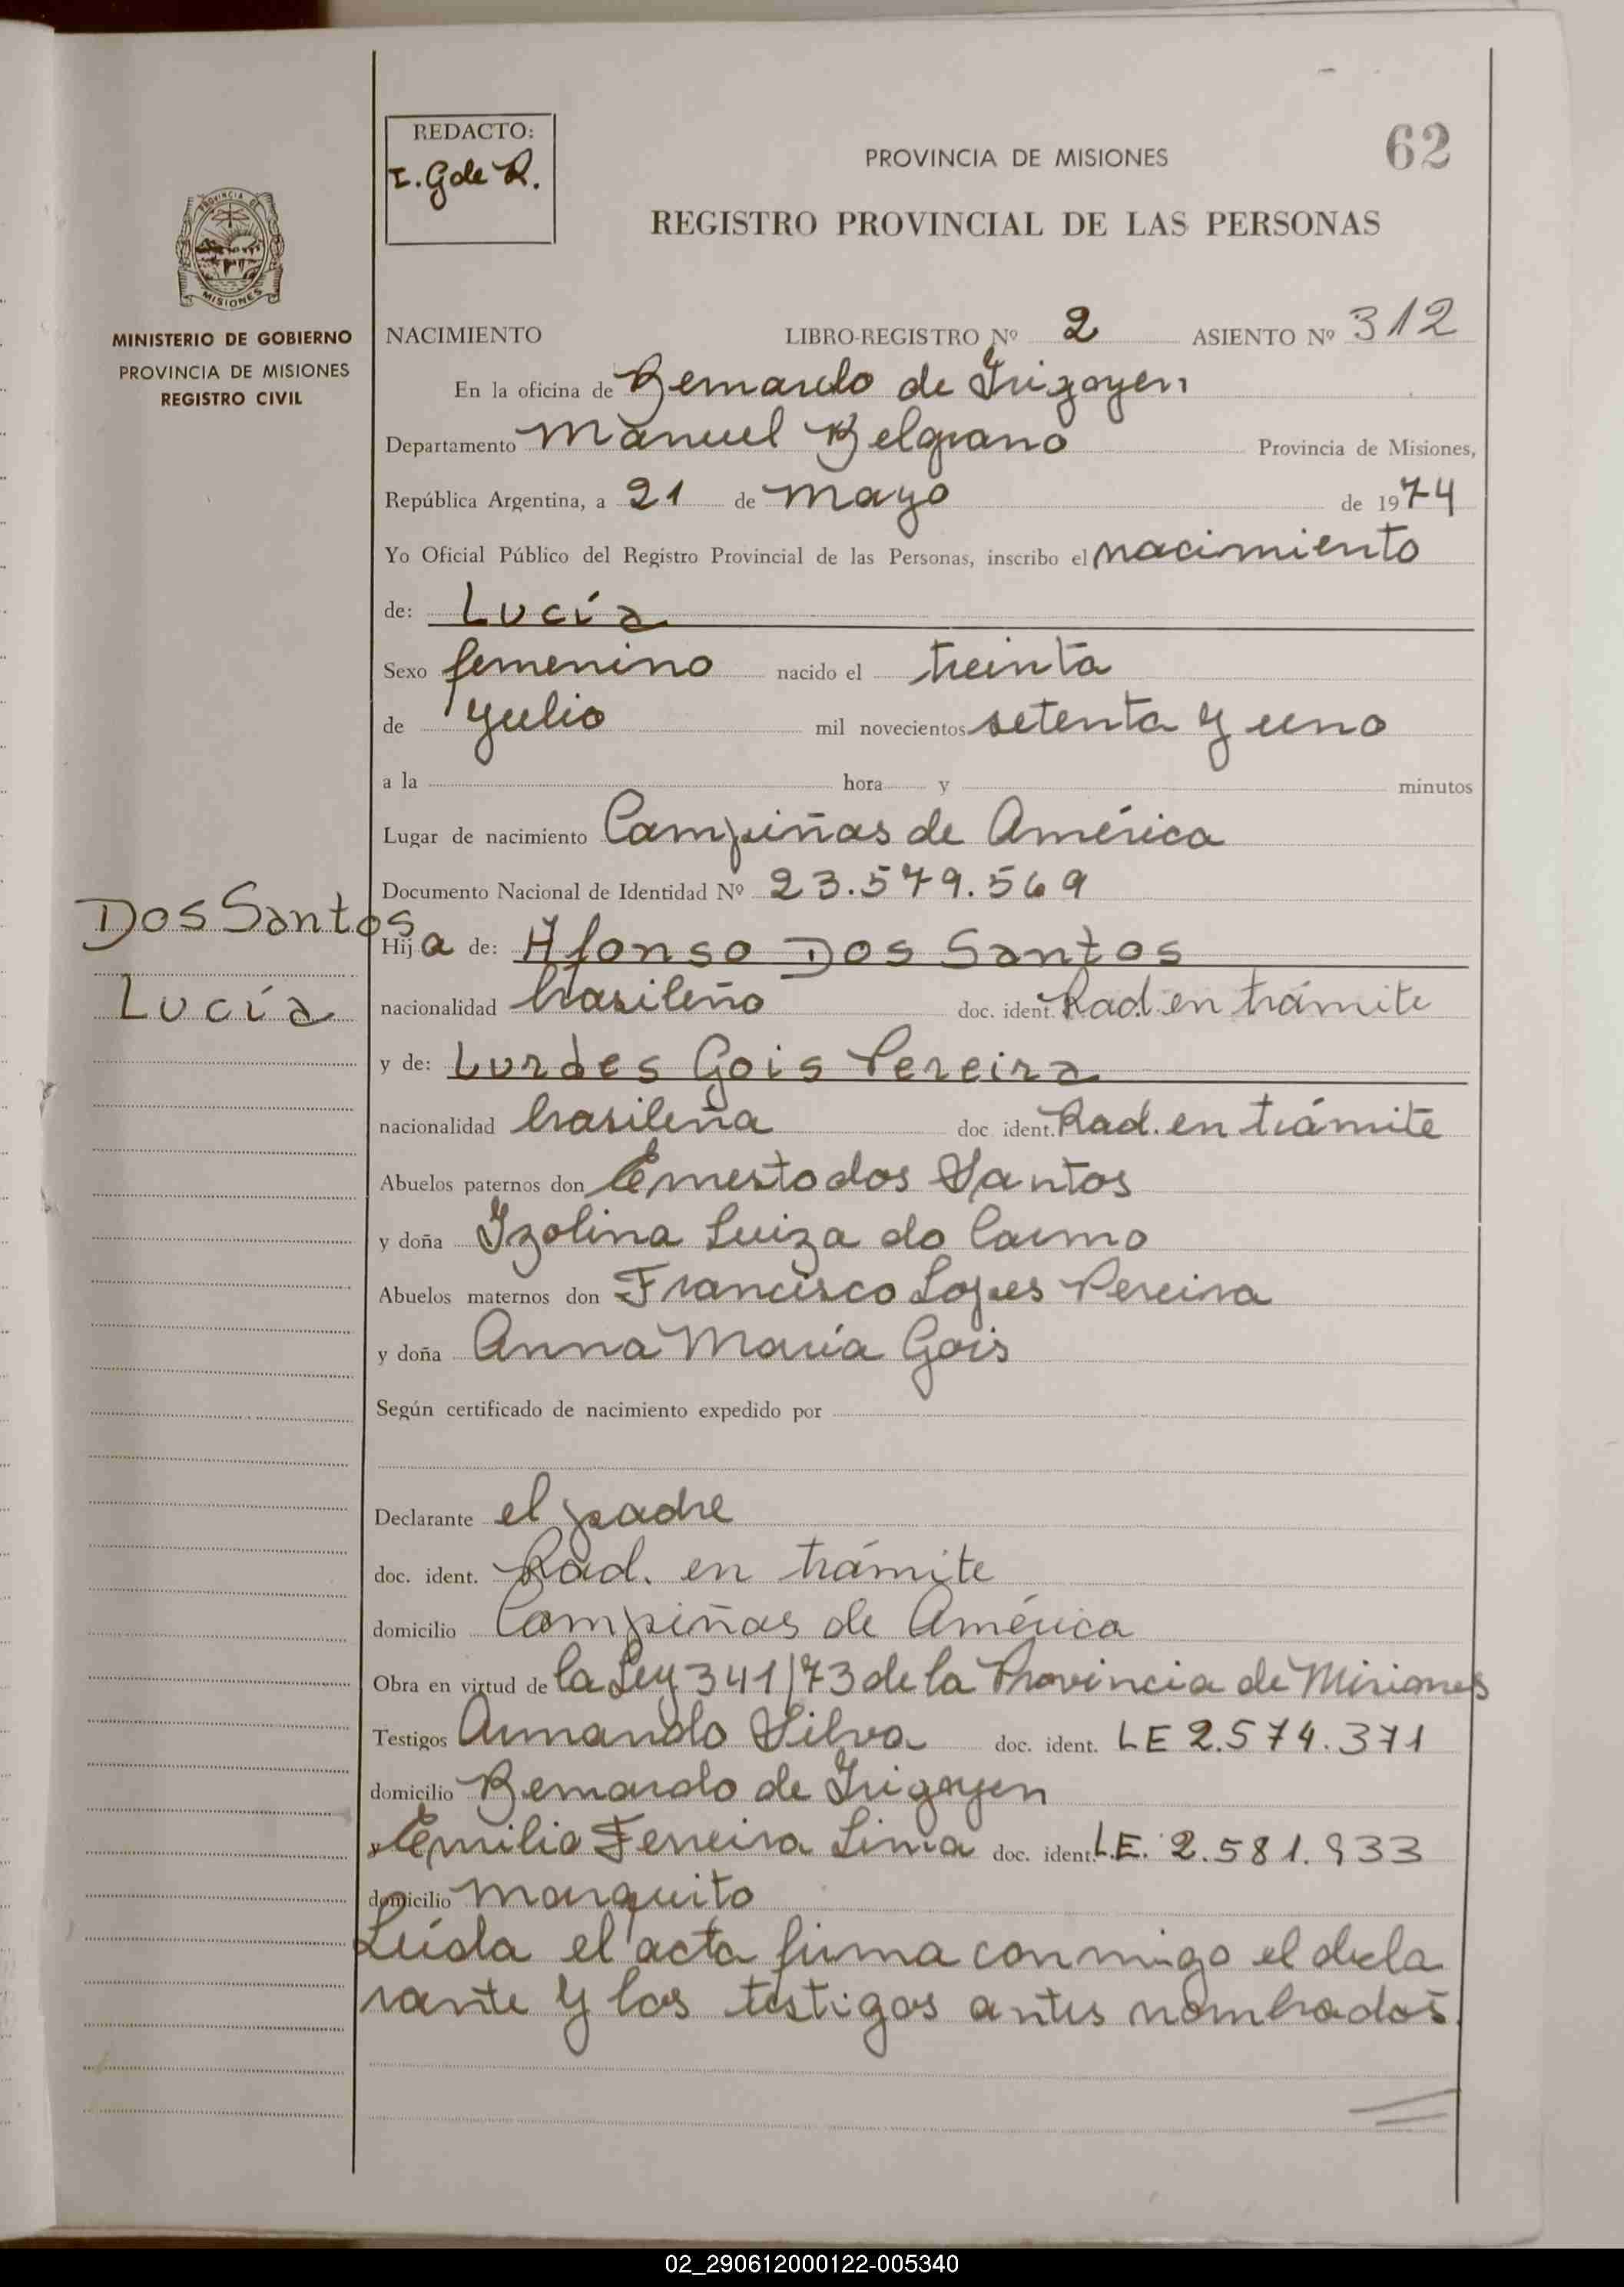 REDACTO:
I. G de R.
PROVINCIA DE MISIONES
62
REGISTRO PROVINCIAL DE LAS PERSONAS
PROVINCIA DE
MISIONES
MINISTERIO DE GOBIERNO
PROVINCIA DE MISIONES
REGISTRO CIVIL
NACIMIENTO LIBRO-REGISTRO Nº 2 ASIENTO Nº 312
En la oficina de Bernardo de Irigoyen
Departamento Manuel Belgrano Provincia de Misiones,
República Argentina, a 21 de Mayo de 1974
Yo Oficial Público del Registro Provincial de las Personas, inscribo el nacimiento
de: Lucía
Sexo femenino nacido el treinta
de Julio mil novecientos setenta y uno
a la hora y minutos
Lugar de nacimiento Campiñas de América
Documento Nacional de Identidad Nº 23.579.569
Dos Santos
Lucía
Hija de: Afonso Dos Santos
nacionalidad brasileño doc. ident. Rad. en trámite
y de: Lurdes Gois Pereira
nacionalidad brasileña doc ident. Rad. en trámite
Abuelos paternos don Ernesto dos Santos
y doña Izolina Luiza do Carmo
Abuelos maternos don Francisco Lopes Pereira
y doña Anna María Gois
Según certificado de nacimiento expedido por
Declarante el padre
doc. ident. Rad. en trámite
domicilio Campiñas de América
Obra en virtud de la Ley 341/73 de la Provincia de Misiones
Testigos Armando Silva doc. ident. LE 2.574.371
domicilio Bernardo de Irigoyen
y Emilio Ferreira Lima doc. ident. L.E. 2.581.933
domicilio Marquito
Leída el acta firma conmigo el decla
rante y los testigos antes nombrados.
02_290612000122-005340